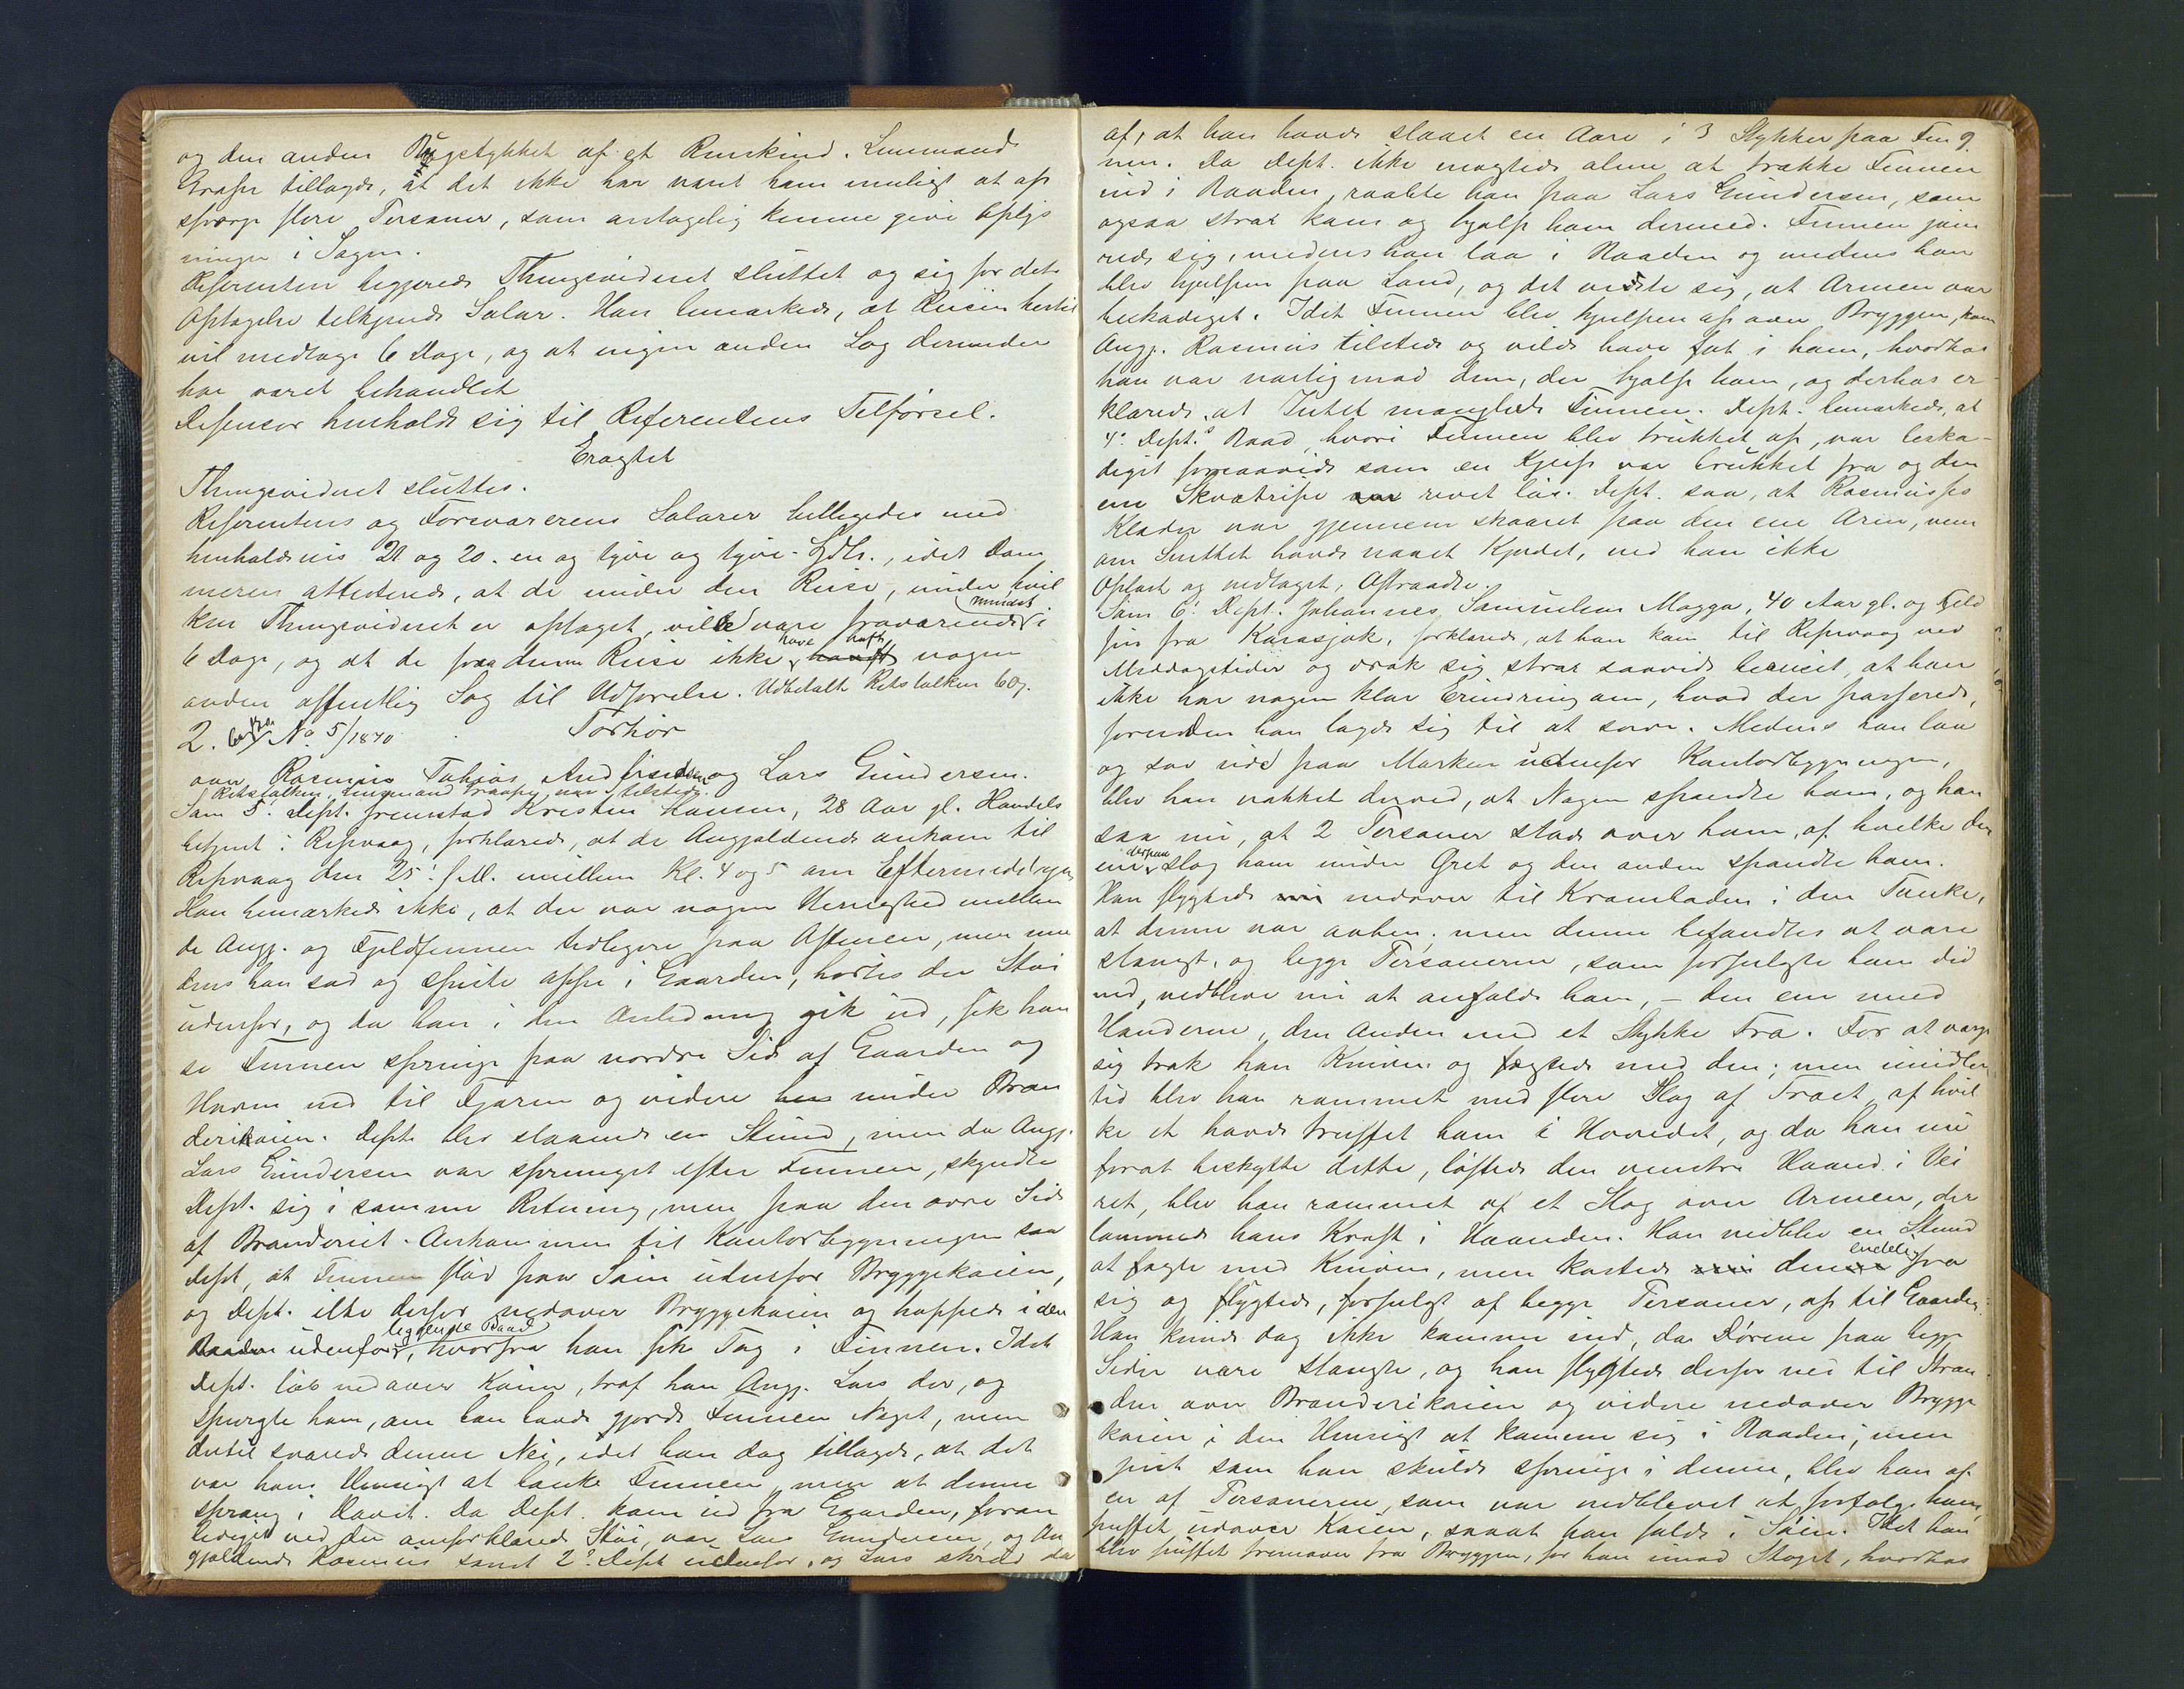 og den anden Rygstykket af et Renskind. Lensmand
Graff tillagde, at det ikke har været ham muligt at op
spørge flere Personer, som antagelig kunne give Oplys
ninger i Sagen.
Referenten begjærede Thingsvidnet sluttet og sig for dets
Optagelse tilkjendt Salær. Han bemærkede, at Reisen hertil
vil medtage 6 Dage, og at ingen anden Sag derunder
har været behandlet
Defensor henholdt sig til Referentens Tilførsel.
Eragtet
Thingsvidnet sluttes.
Referentens og Forsvarerens Salærer billigedes med
henholdsvis 21 og 20. en og tyve og tyve. Spdlr., idet Dom
meren attesterede, at de under den Reise, under hvil
ken Thingsvidnet er optaget, ville være fraværende mindst i
6 Dage, og at de paa denne Reise ikke have havt nogen
anden offentlig Sag til Udførelse. Udbetalt Retstolken 60 ß.
2. No 5/1870 Forhør
over Rasmus Tobias Andersen og Lars Gundersen.
Retstolken, Lensmand Graff, var tilstede.
Som 5. Dept. fremstod Kristen Hansen, 28 Aar gl. Handels
betjent i Repvaag, forklarede, at de Angjældende ankom til
Repvaag den 25. f.M. imellem Kl. 4 og 5 om Eftermiddagen
Han bemærkede ikke, at der var nogen Uenighed mellem
de Angj. og Fjeldfinnen tidligere paa Aftenen, men me
dens han sad og spiste oppe i Gaarden, hørtes der Støi
udenfor, og da han i den Anledning gik ud, fik han
se Finnen springe paa nordre Side af Gaarden og
Haven ned til Fjæren og videre hen under Bræn
derikaien. Dept. blev staaende en Stund, men da Angj.
Lars Gundersen var sprunget efter Finnen, skyndte
Dept. sig i samme Retning, men paa den øvre Side
af Brænderiet. Ankommen til Kontorbygningen saa
Dept, at Finnen flød paa Søen udenfor Bryggekaien,
og Dept. ilte derfor nedover Bryggekaien og hoppede i den
Baaden udenfor liggende Baad, hvorfra han fik Tag i Finnen. Idet
Dept. løb nedover Kaien, traf han Angj. Lars der, og
spurgte ham, om han havde gjort Finnen Noget, men
dertil svarede denne Nei, idet han dog tillagde, at det
var hans Hensigt at banke Finnen, men at denne
sprang i Havet. Da Dept. kom ud fra Gaarden, foran
lediget ved den omforklarede Støi, var Lars Gundersen og An
gjældende Rasmus samt 2. Dept udenfor, og Lars skrød da
af, at han havde slaaet en Aare i 3 Stykker paa Fin 9.
nen. Da Dept. ikke magtede alene at trække Finnen
ind i Baaden, raabte han paa Lars Gundersen, som
ogsaa strax kom og hjalp ham dermed. Finnen jam
rede sig, medens han laa i Baaden og medens han
blev hjulpen paa Land, og det viste sig, at Armen var
beskadiget. Idet Finnen blev hjulpen op over Bryggen, kom
Angj. Rasmus tilstede og vilde have fat i ham, hvorhos
han var vred imod dem, der hjalp ham, og derhos er
klarede, at Intet manglede Finnen. Dept. bemærkede, at
4. Dept.s Baad, hvori Finnen blev trukket op, var beska-
diget forsaavidt som en Kjeip var brukket fra og den
ene Skvætripe var revet løs. Dept. saa, at Rasmus's
Klæder var gjennem skaaret paa den ene Arm, men
om Snittet havde naaet Kjødet, ved han ikke
Oplæst og vedtaget. Aftraadte.
Som 6. Dept. Johannes Samuelsen Magga, 40 Aar gl. og Fjeld
fin fra Karasjok, forklarede, at han kom til Repvaag ved
Middagstider og drak sig strax saavidt beruset, at han
ikke har nogen klar Erindring om, hvad der passerede,
forinden han lagde sig til at sove. Medens han laa
og sov ude paa Marken udenfor Kontorbygningen,
blev han vækket derved, at Nogen spændte ham, og han
saa nu, at 2 Personer stod over ham, af hvilke den
ene derpaa slog ham under Øret og den anden spændte ham.
Han flygtede nu nedover til Kramboden i den Tanke,
at denne var aaben, men denne befandtes at være
stængt, og begge Personerne, som forfulgte ham did
ned, vedbleve nu at anfalde ham, - den ene med
Hænderne, den Anden med et Stykke Træ. For at værge
sig trak han Kniven og fægtede med den; men imidler
tid blev han rammet med flere Slag af Træet, af hvil
ke et havde truffet ham i Hovedet, og da han nu
forat beskytte dette, løftede den venstre Haand i Vei
ret, blev han rammet af et Slag over Armen, der
lammede hans Kraft i Haanden. Han vedblev en Stund
at fægte med Kniven, men kastede nu den endelig fra
sig og flygtede, forfulgt af begge Personer, op til Gaarden.
Han kunde dog ikke komme ind, da Dørene paa begge
Sider vare stængte, og han flygtede derfor ned til Stran
den over Brænderikaien og videre nedover Brygge
kaien i den Hensigt at komme sig i Baaden, men
just som han skulde springe i denne, blev han af
en af Personerne, som var vedblevet at forfølge ham,
puffet udover Kaien, saaat han faldt i Søen. Idet han
blev puffet fremover fra Bryggen, for han imod Slaget, hvorhos